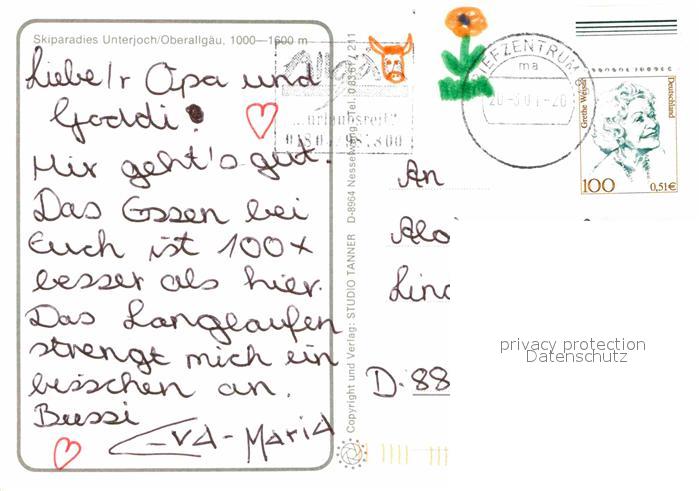 Skiparadies Unterjoch/Oberallgäu, 1000—1600 m
Liebe/r Opa und
Goddi!
Mir geht's gut.
Das Essen bei
Euch ist 100x
besser als hier.
Das Langlaufen
strengt mich ein
bisschen an.
Bussi
Eva-Maria
Copyright und Verlag: STUDIO TANNER D-8964 Nesselwang Tel.
BRIEFZENTRUM
ma
Grethe Weiser
Deutschland
100
0,51€
An
Alo
Linc
D-88
privacy protection
Datenschutz